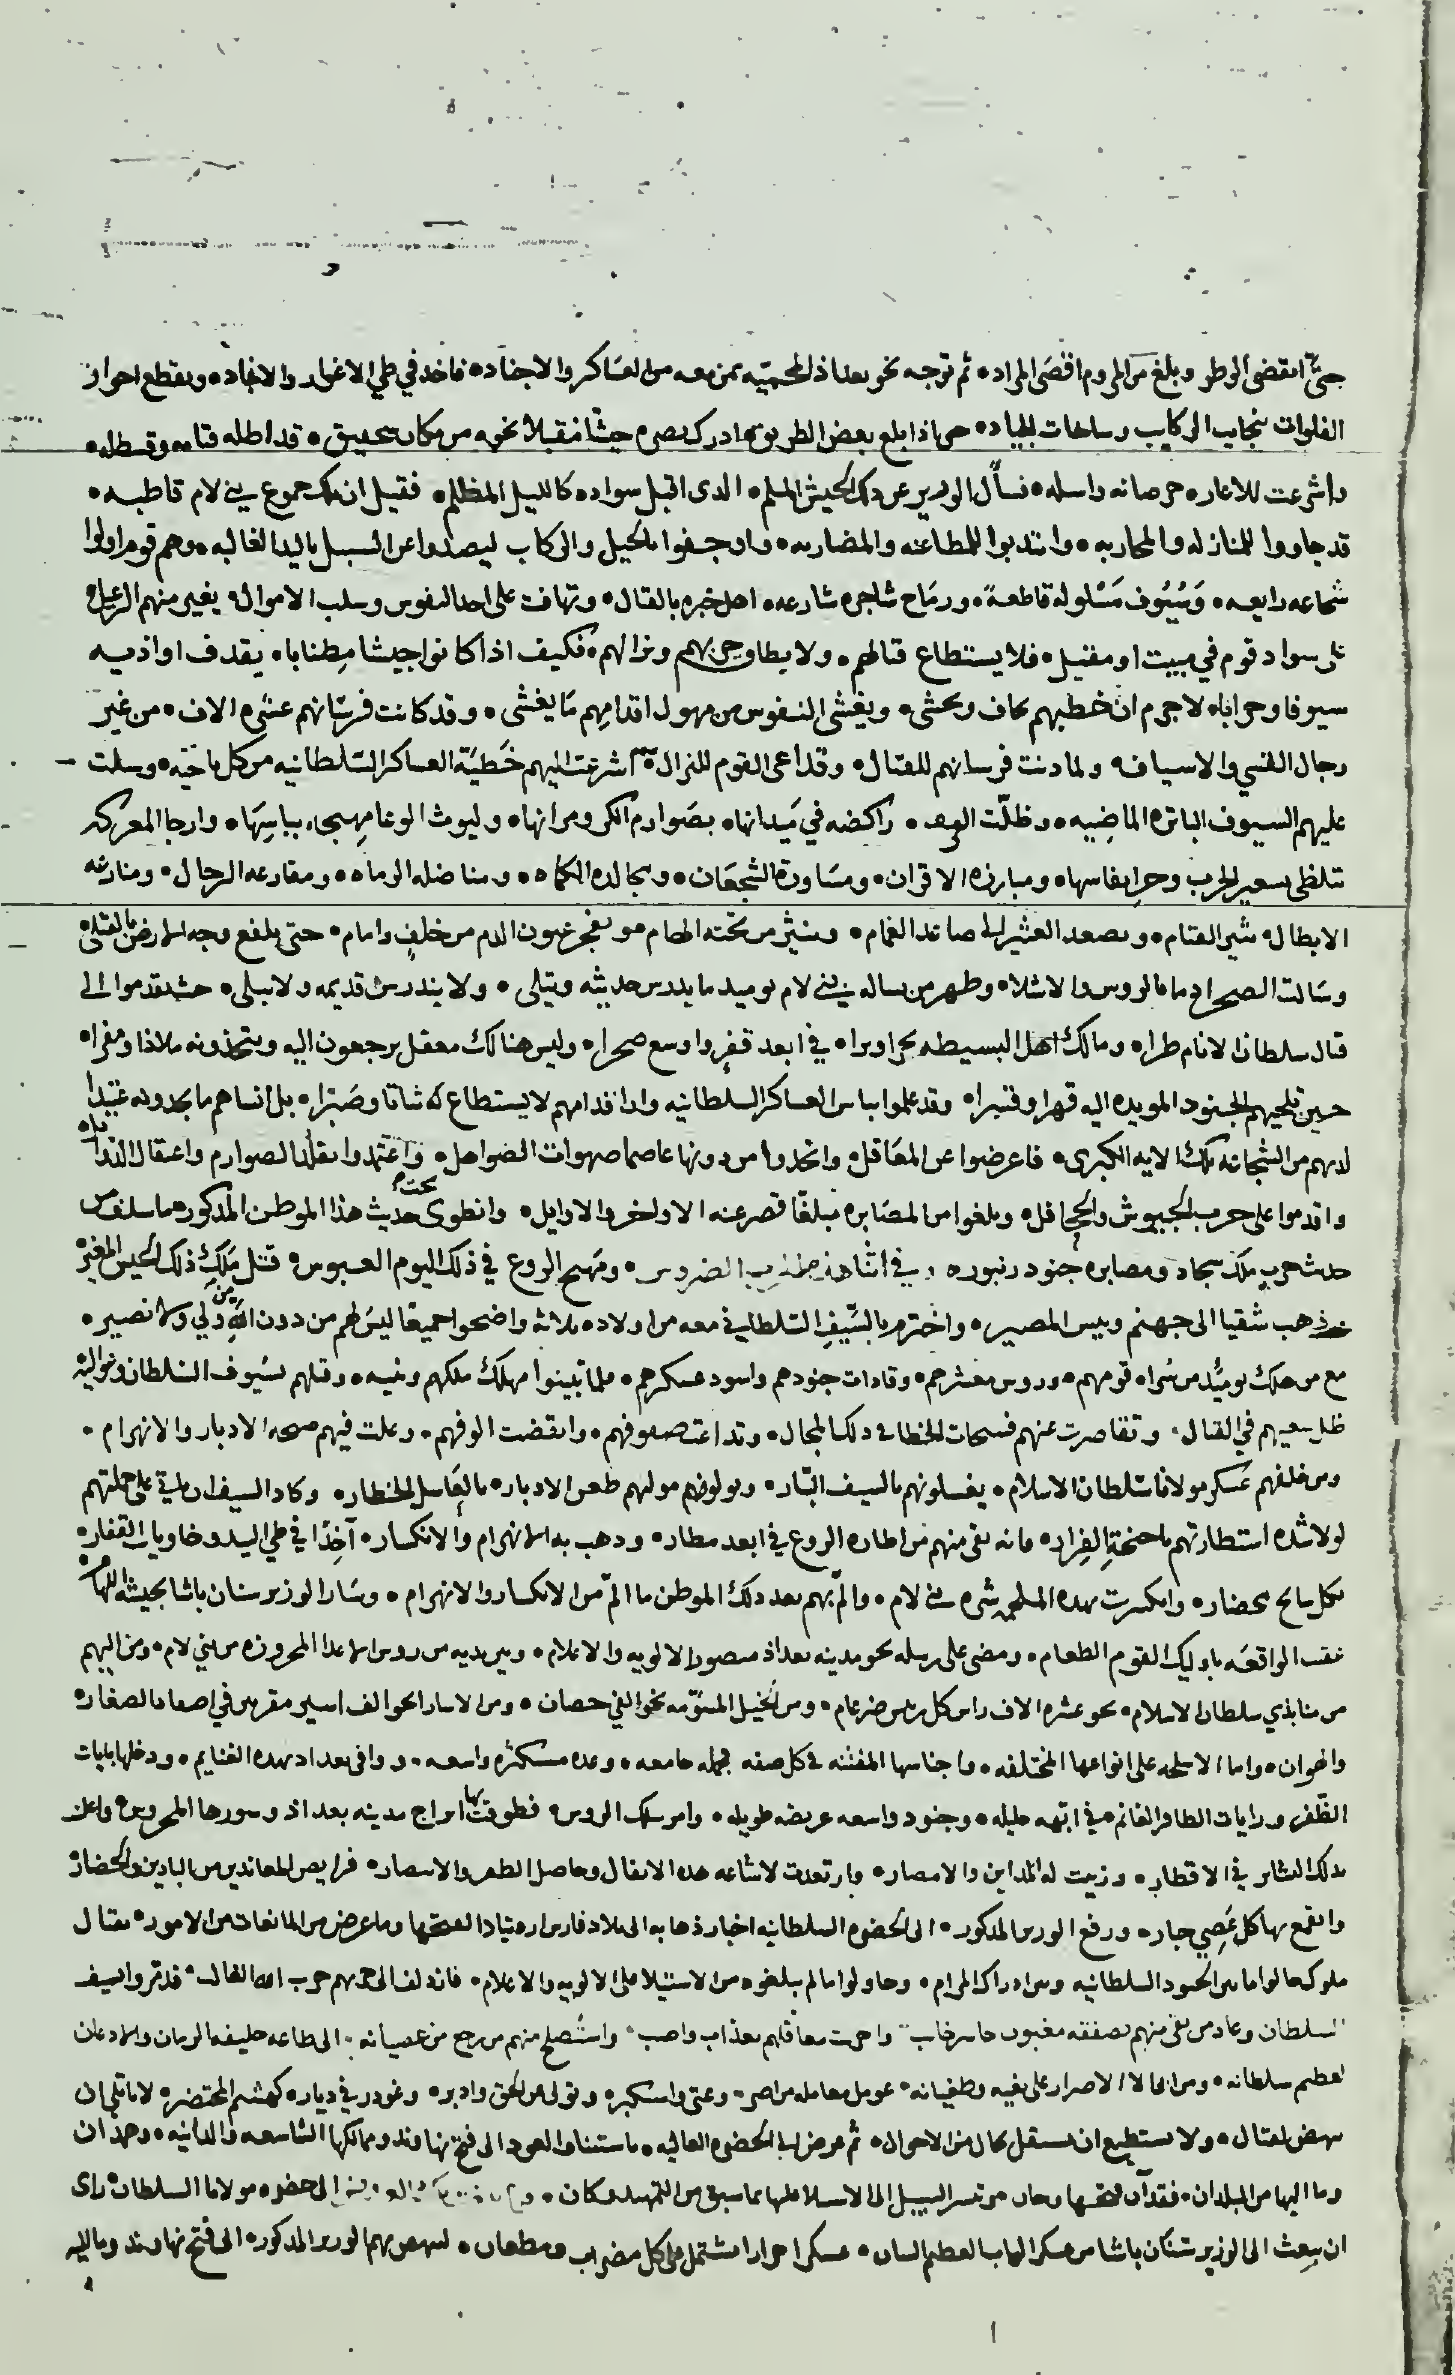 حتى انقضى الوطر وبلغ من المروم اقصى المراد ثم توجه نحو بغداد المحميه بمن معه من العساكر والاجناد فاخذ في طي الاغوار والانجاد ويقطع احواز
الفلوات بنجايب الركاب وسابحات الجياد حتى اذا بلغ بعض الطريق ادرك بصره جيشا مقبلا نحوه من مكان سحيق قد اظله قتامه وقسطله
واشرعت للاغاره خرصانه واسله فسأل الوزير عن ذلك الجيش الملم الذى اقبل سواده كالليل المظلم فقيل ان تلك جموع بني لام قاطبه
قد جاووا للمنازله والمحاربه وانتدبوا للمطاعنه والمضاربه واوجفوا بالخيل والركاب ليصدوا عن السبيل باليد الغالبه وهم قوم اولوا
شجاعه رايعه وسيوف مسلوله قاطعة ورماح شاجره شارعه اهل خبره بالقتال وتهافت على اخذ النفوس وسلب الاموال يغير منهم الرعيل
على سواد قوم في مبيت او مقيل فلا يستطاع قتالهم ولا يطاق حربهم ونزالهم فكيف اذا كانوا جيشا مطنابا يقذف اواذيه
سيوفا وحرابا لا جرم ان خطبهم يخاف ويخشى ويغشى النفوس من مهول اقدامهم ما يغشى وقد كانت فرسانهم عشره الاف من غير
رجال القسي والاسياف ولما دنت فرسانهم للقتال وتداعى القوم للنزال اشرعت اليهم خطية العساكر السلطانيه من كل ناحيه وسلت
عليهم السيوف الباتره الماضيه وظلت راكضه في ميدانها بصوارم الكر ومرانها وليوث الوغا مهيجاء بباسها وارجا المعركه
تتلظى بسعير الحرب وحر انفاسها ومبارزه الاقران ومساورة الشجعان ومجالده الكماه ومناضله الرماه ومقارعه الرجال ومنازله
الابطال تثير القتام ويصعد العثير الى صاعد الغمام وينثر من تحته الهام ويفجر عيون الدم من خلف وامام حتى تلفع وجه الارض بالقتلى
وسالت الصحراء دما بالروس والاشلاء وظهر من بساله بني لام يوميد ما يدرس حديثه ويتلى ولا يندرس قديمه ولا يبلى حيث تقدموا الى
قتال سلطان الانام طرا ومالك اهل البسيطه بحرا وبرا في ابعد قفر واوسع صحرا وليس هنالك معقل يرجعون اليه ويتخذونه ملاذا ومفرا
حين تلجيهم الجنود المويده اليه قهرا وقسرا وقد علموا باس العساكر السلطانيه وان اقدامهم لا يستطاع له ثباتا وصبرا بل انساهم ما يجدونه عتيدا
لديهم من الشجاعه تلك الايه الكبرى فاعرضوا عن المعاقل واتخذوا من دونها عاصما صهوات الصواهل واعتمدوا بقلة الصوارم واعتقال الذوابل
واقدموا على حرب الجيوش والجحافل وبلغوا من المصابره مبلغا قصر عنه الاواخر والاوايل وانطوى تحت حديث هذا الموطن المذكور ما سلف من
حديث حرب ملك سجاد ومصابره جنود رنبوره وفي اثنا هذه الحرب الضروس ومهيج الروع في ذلك اليوم العبوس قتل ملك ذلك الجيش المغير
وذهب شقيا الى جهنم وبيس المصير واخترم بالسيف السلطاني معه من اولاده ثلاثه واضحوا جميعا ليس لهم من دون الله من ولي ولا نصير
مع من هلك يوميذ من سراه قومهم وروس معشرهم وقادات جنودهم واسود عسكرهم فلما تبينوا مهلك ملكهم وبنيه وقتلهم بسيوف السلطان وعواليه
ظل سعيهم في القتال وتقاصرت عنهم فسحات الخطا في ذلك المجال وتداعت صفوفهم وانقضت الوفهم وعلت فيهم صيحه الادبار والانهزام
ومن خلفهم عسكر مولانا سلطان الاسلام يغسلونهم بالسيف البتار ويولونهم مولهم طعن الادبار بالعاسل الخطار وكاد السيف ان ياتي على جملتهم
لولا شده استطارتهم باجنحة الفرار فانه بقي منهم من اطاره الروع في ابعد مطار وذهب به الانهزام والانكسار آخذا في طي البيد وخاويات القفار
بكل سابح محضار وانكسرت بهذه الملحمه شره بني لام والم بهم بعد ذلك الموطن ما الم من الانكسار والانهزام وسار الوزير سنان باشا بجيشه اللهام
عقب الواقعه باوليك القوم الطغام ومضى على رسله نحو مدينه بغداد منصور الالويه والاعلام وبين يديه من روس الاعدا المحزوزه من بني لام ومن اليهم
من منابذي سلطان الاسلام نحو عشره الاف راس كل ريس ضرغام ومن الخيل المسومه نحو الفي حصان ومن الاسارا نحو الف اسير مقرنين في اصفاد الصغار
والهوان واما الاسلحه على انواعها المختلفه واجناسها المفننه في كل صفه فجمله جامعه وعده مستكثره واسعه ووافى بغداد بهذه الغنايم ودخلها بايات
الظفر ورايات الظافر الغانم في ابهه جليله وجنود واسعه عريضه طويله وامر بتلك الروس فطوقت بها ابراج مدينه بغداد وسورها المحروس واعلن
بذلك البشاير في الاقطار وزينت له المداين والامصار وارتعدت لاشاعه هذه الانفال وحاصل الظفر والانتصار فرايص المعاندين من البادين والحضار
وانقمع بها كل عصي جبار ورفع الوزير المذكور الى الحضره السلطانيه اخبار ذهابه الى بلاد فارس ارتيادا لفتحها وما عرض من المانعات من الامور بقتال
ملوك حالوا ما بين الجنود السلطانيه وبين ادراك المرام وحاولوا ما لم يبلغوه من الاستيلا على الالويه والاعلام فاندلف الى نحرهم حرب الله الغالب قد تروا سيف
السلطان وعاد من بقي منهم بصفقه مغبون خاسر خايب واخرجت معاقلهم بعذاب واصب واستصلح منهم من رجع من عصيانه الى طاعه خليفه الرحمن والاذعان
لعظيم سلطانه ومن ابا الا الاصرار على بغيه وطغيانه عومل معامله من اصر وعتى واستكبر وتولى عن الحق وادبر وغودر في دياره كهشيم المحتضر لا يتأتى ان
ينهض لقتال ولا يستطيع ان يستقل بحال من الاحوال ثم عرض الى الحضره العاليه باستيناف العود الى فتح نهاوند وممالكها الشاسعه والدانيه وهمدان
وما اليها من البلدان فقد آن فتحها وحان من تيسر السبيل الى الاستيلا عليها بما سبق من التمهيد وكان الى حضره مولانا السلطان راى
ان يبعث الى الوزير سنان باشا من عسكر الباب العظيم الشان عسكرا جرارا مشتمل على كل مضراب ومطعان لينهض بهم الوزير المذكور الى فتح نهاوند وما اليه